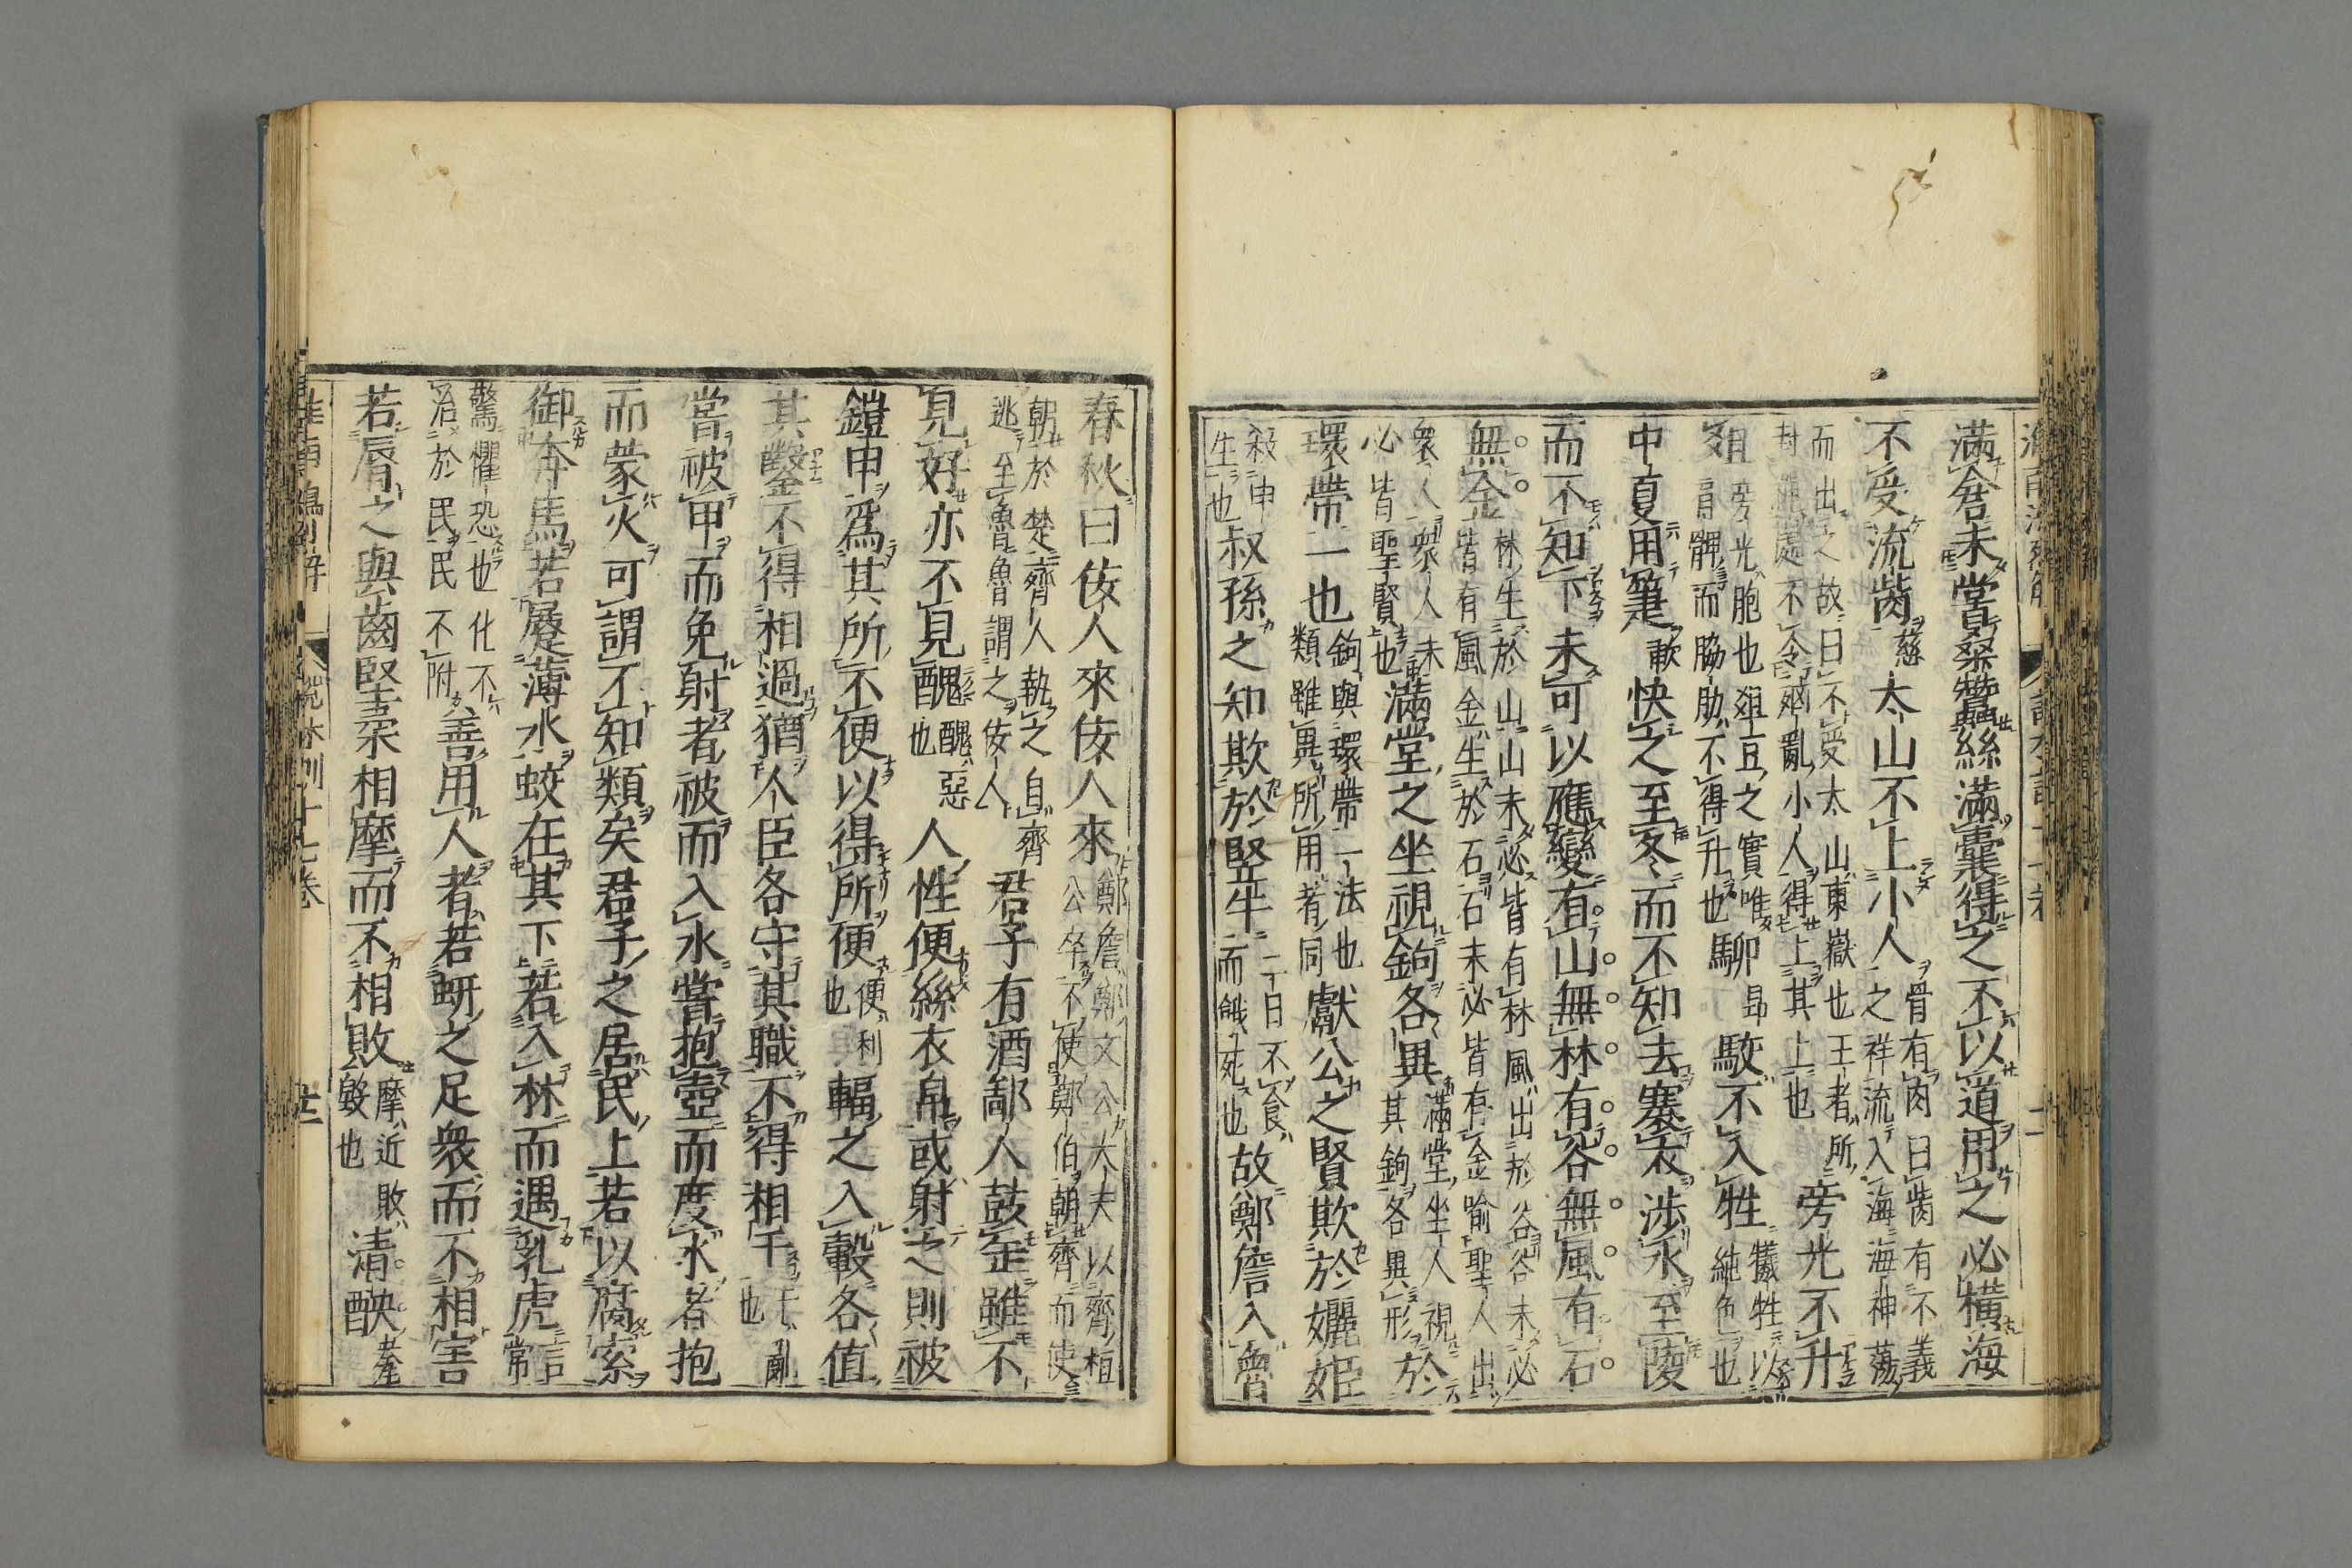 滿倉未嘗桑蠶絲滿囊得之不以道用之必橫海
不受流胔太山不上小人骨有肉曰胔有不義
之祥流入海海神蕩
而出之故曰不受太山東嶽也王者所
封禪處不令凶亂小人得上其上也旁光不升
俎旁光胞也俎豆之實唯
肩髀而脇肋不得升也駠駮不入牲犧牲以
純色也
中夏用箑快之至冬而不知去褰衣涉水至陵
而不知下未可以應變有山無林有谷無風有石
無金林生於山山未必皆有林風出於谷谷未必
皆有風金生於石石未必皆有金喻聖人出
衆人衆人未
必皆聖賢也滿堂之坐視鉤各異滿堂坐人視
其鉤各異形於
環帶一也鉤與環帶一法也
類雖異所用者同獻公之賢欺於孋姬
殺申
生也叔孫之知欺於竪牛三日不食
而餓死也故鄭詹入魯
春秋曰佞人來佞人來鄭詹鄭文公大夫以齊桓
公卒不使鄭伯朝齊而使
朝於楚齊人執之自齊
逃至魯魯謂之佞人君子有酒鄙人鼓缶雖不
見好亦不見醜醜惡
也人性便絲衣帛或射之則被
鎧甲爲其所不便以得所便便利
也輻之入轂各值
其鑿不得相通猶人臣各守其職不得相干干亂
也
嘗被甲而免射者被而入水嘗抱壺而度水者抱
而蒙火可謂不知類矣君子之居民上若以腐索
御奔馬若蹍薄氷蛟在其下若入林而遇乳虎言常
驚懼恐也化不
洽於民民不附善用人者若蚈之足衆而不相害
若脣之與齒堅柔相摩而不相敗摩近敗
毀也清醠